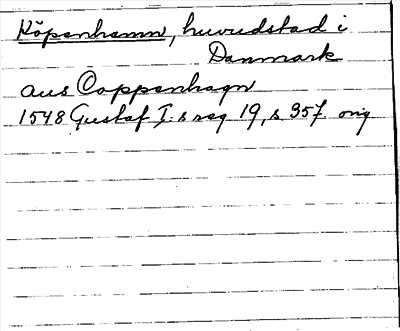 Köpenhamn, huvudstad i
Danmark
aus Coppenhagn
1548 Gustaf I:s reg 19, s 357. orig